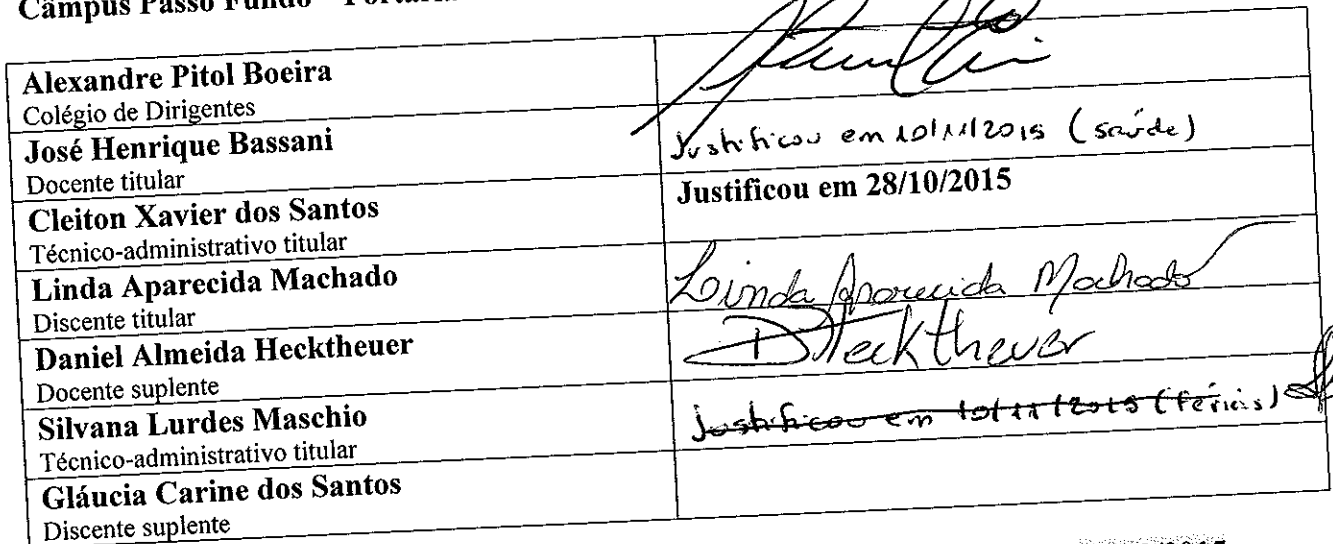 Câmpus Passo Fundo
Alexandre Pitol Boeira
Colégio de Dirigentes
José Henrique Bassani
Docente titular
Justificou em 10/11/2015 (saúde)
Cleiton Xavier dos Santos
Técnico-administrativo titular
Justificou em 28/10/2015
Linda Aparecida Machado
Discente titular
Linda Aparecida Machado
Daniel Almeida Hecktheuer
Docente suplente
DHecktheuer
Silvana Lurdes Maschio
Técnico-administrativo titular
Justificou em 10/11/2015 (férias)
Gláucia Carine dos Santos
Discente suplente